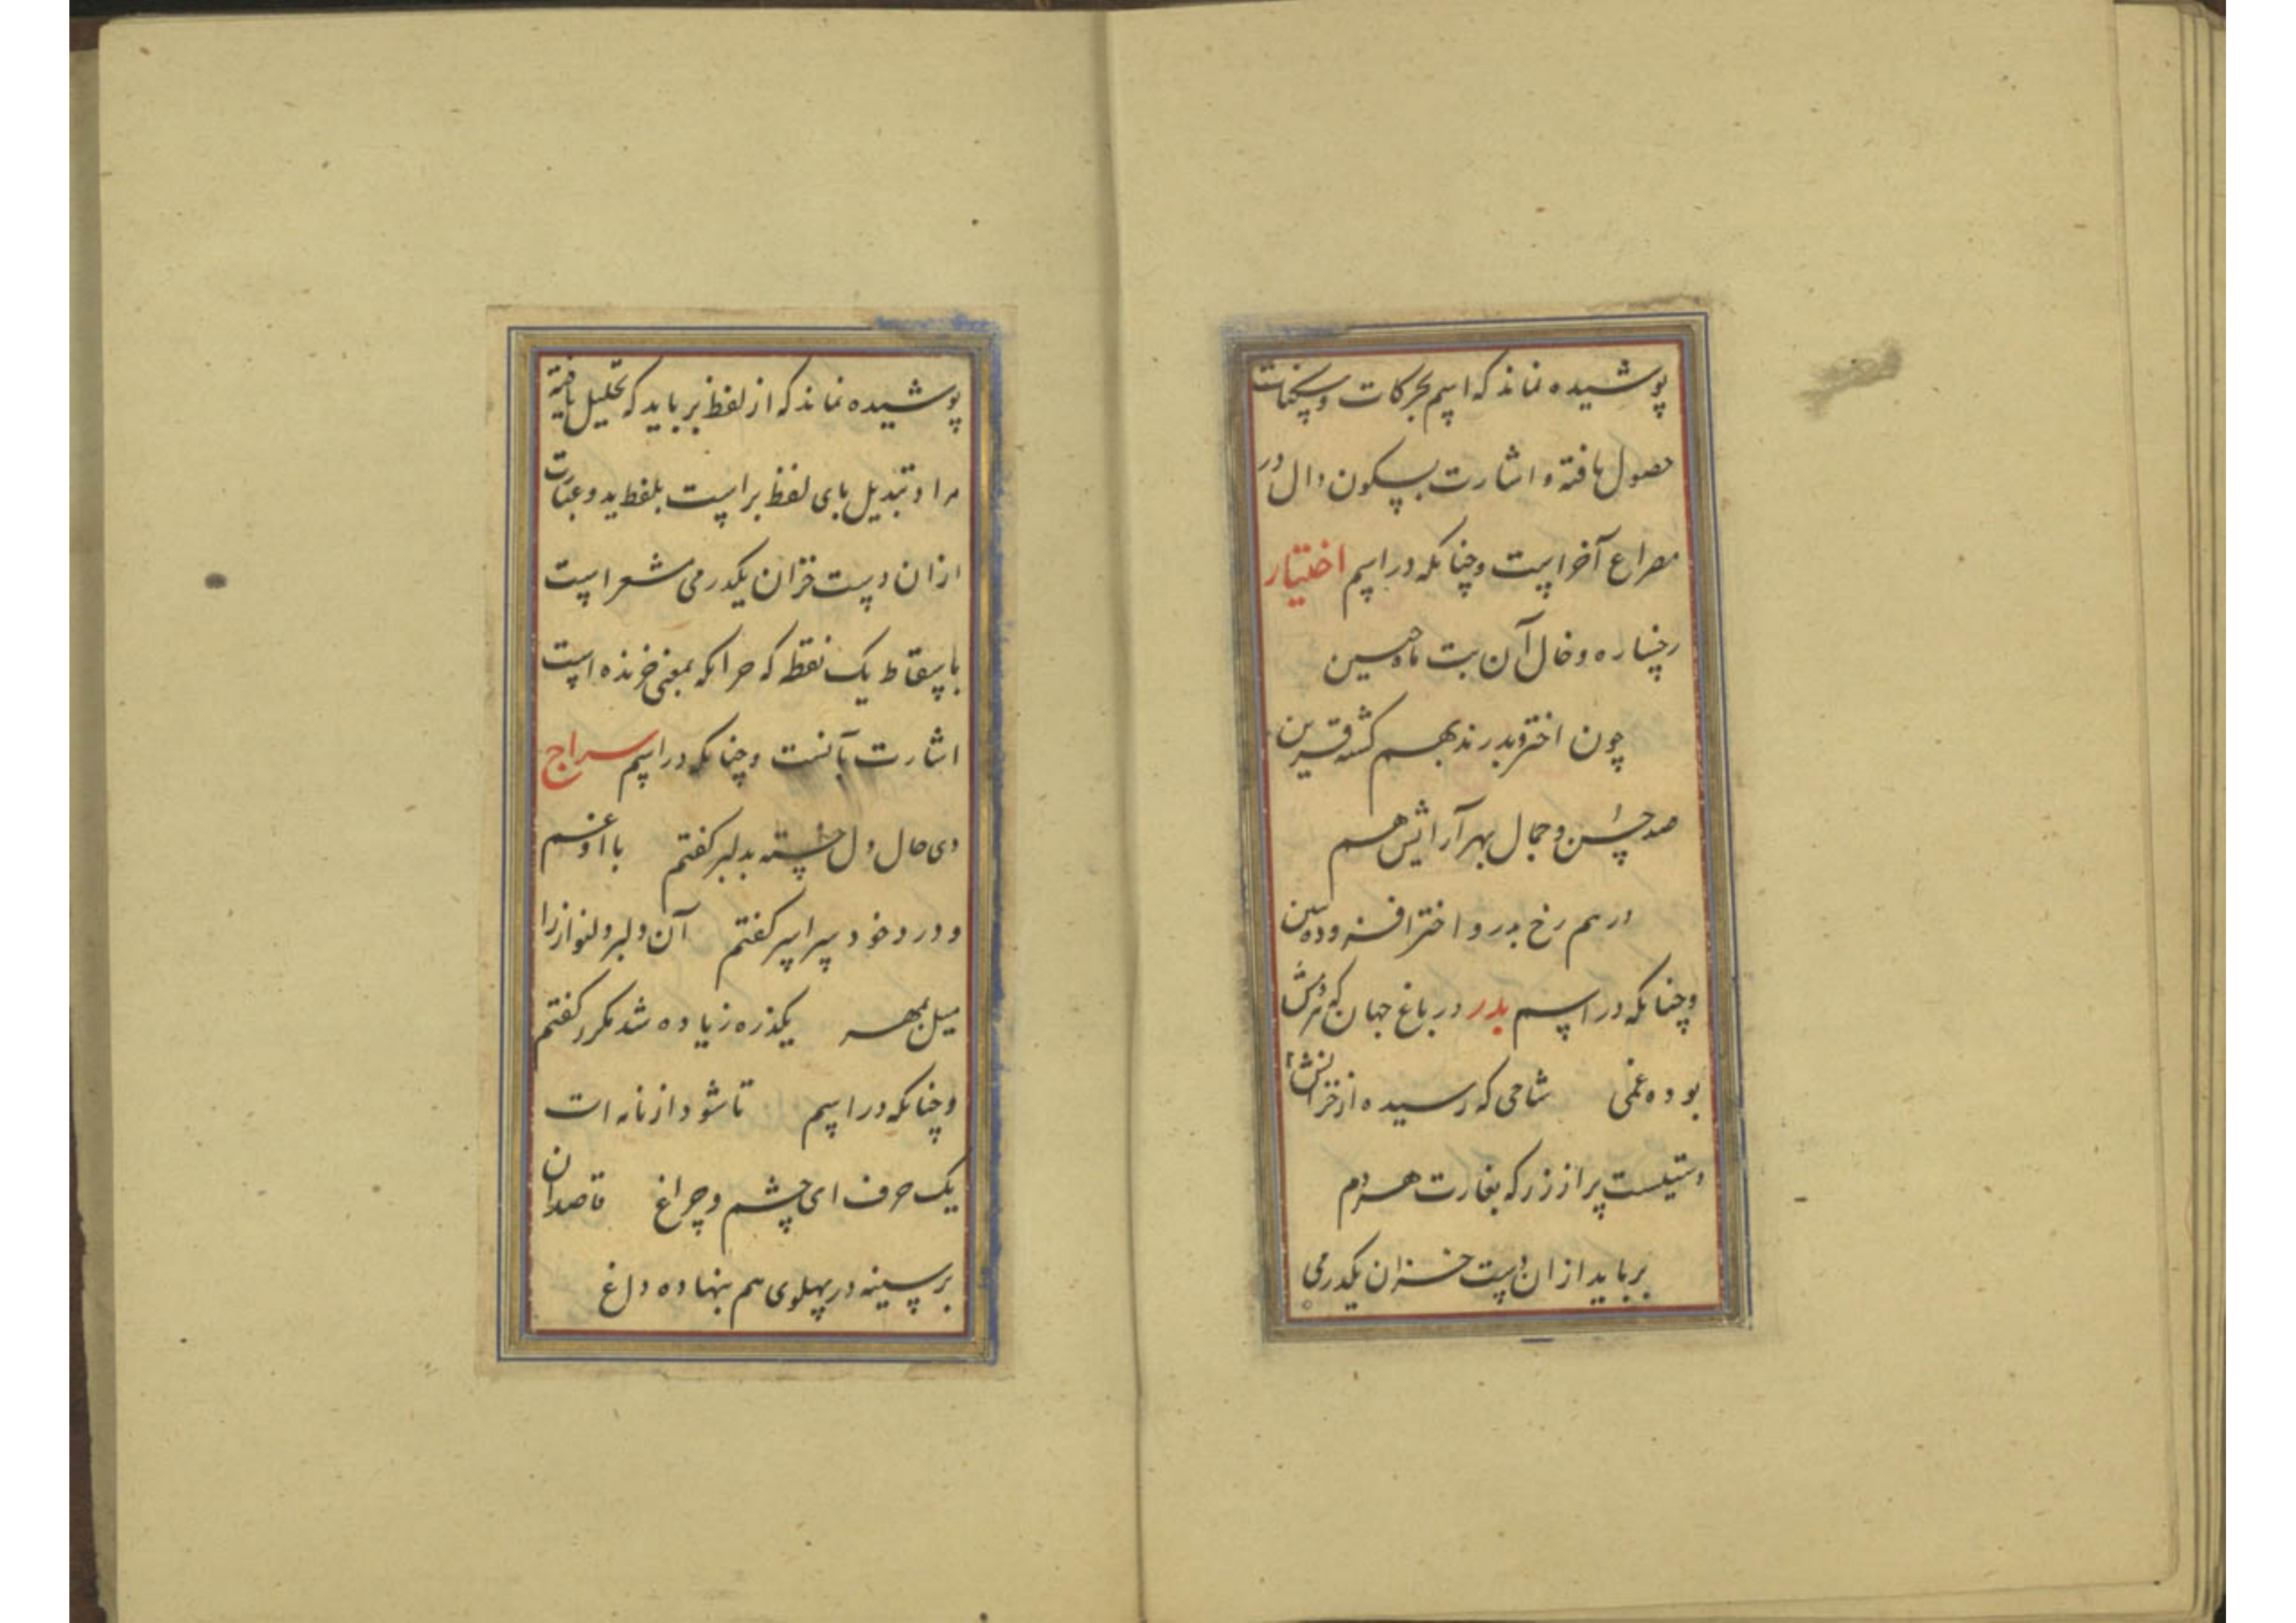 پوشیده نماند که اسم بحرکات و سکنات
حصول یافته و اشارت بسکون دال در
مصراع آخر است و چنانکه در اسم اختیار
رخساره و خال آن بت ماه جبین
چون اختر و بدرند بهم گشته قرین
صد حسن و جمال بهر آرایش هم
در هم رخ بدر و اختر افزوده ببین
و چنانکه در اسم بدر در باغ جهان که
بوده غمی شاخی که رسیده از خزانش
دستیست پر از زر که بغارت هر دم
برباید از ان دست خزان یکدرمی
پوشیده نماند که از لفظ برباید که تحلیل یافته
مراد تبدیل بای لفظ بر است بلفظ ید و عبارت
از ان دست خزان یکدرمی مشعر است
باسقاط یک نقطه که خرا که بمعنی خرنده است
اشارت بآنست و چنانکه در اسم سراج
دی حال دل خسته بدلبر گفتم با او غم
و درد خود سراسر گفتم آن دلبر دلنواز را
میل بمهر یکذره زیاده شد مکرر گفتم
و چنانکه در اسم تا شود از نامه ات
یک حرف ای چشم و چراغ قاصدان
بر سینه در پهلوی هم بنهاده داغ